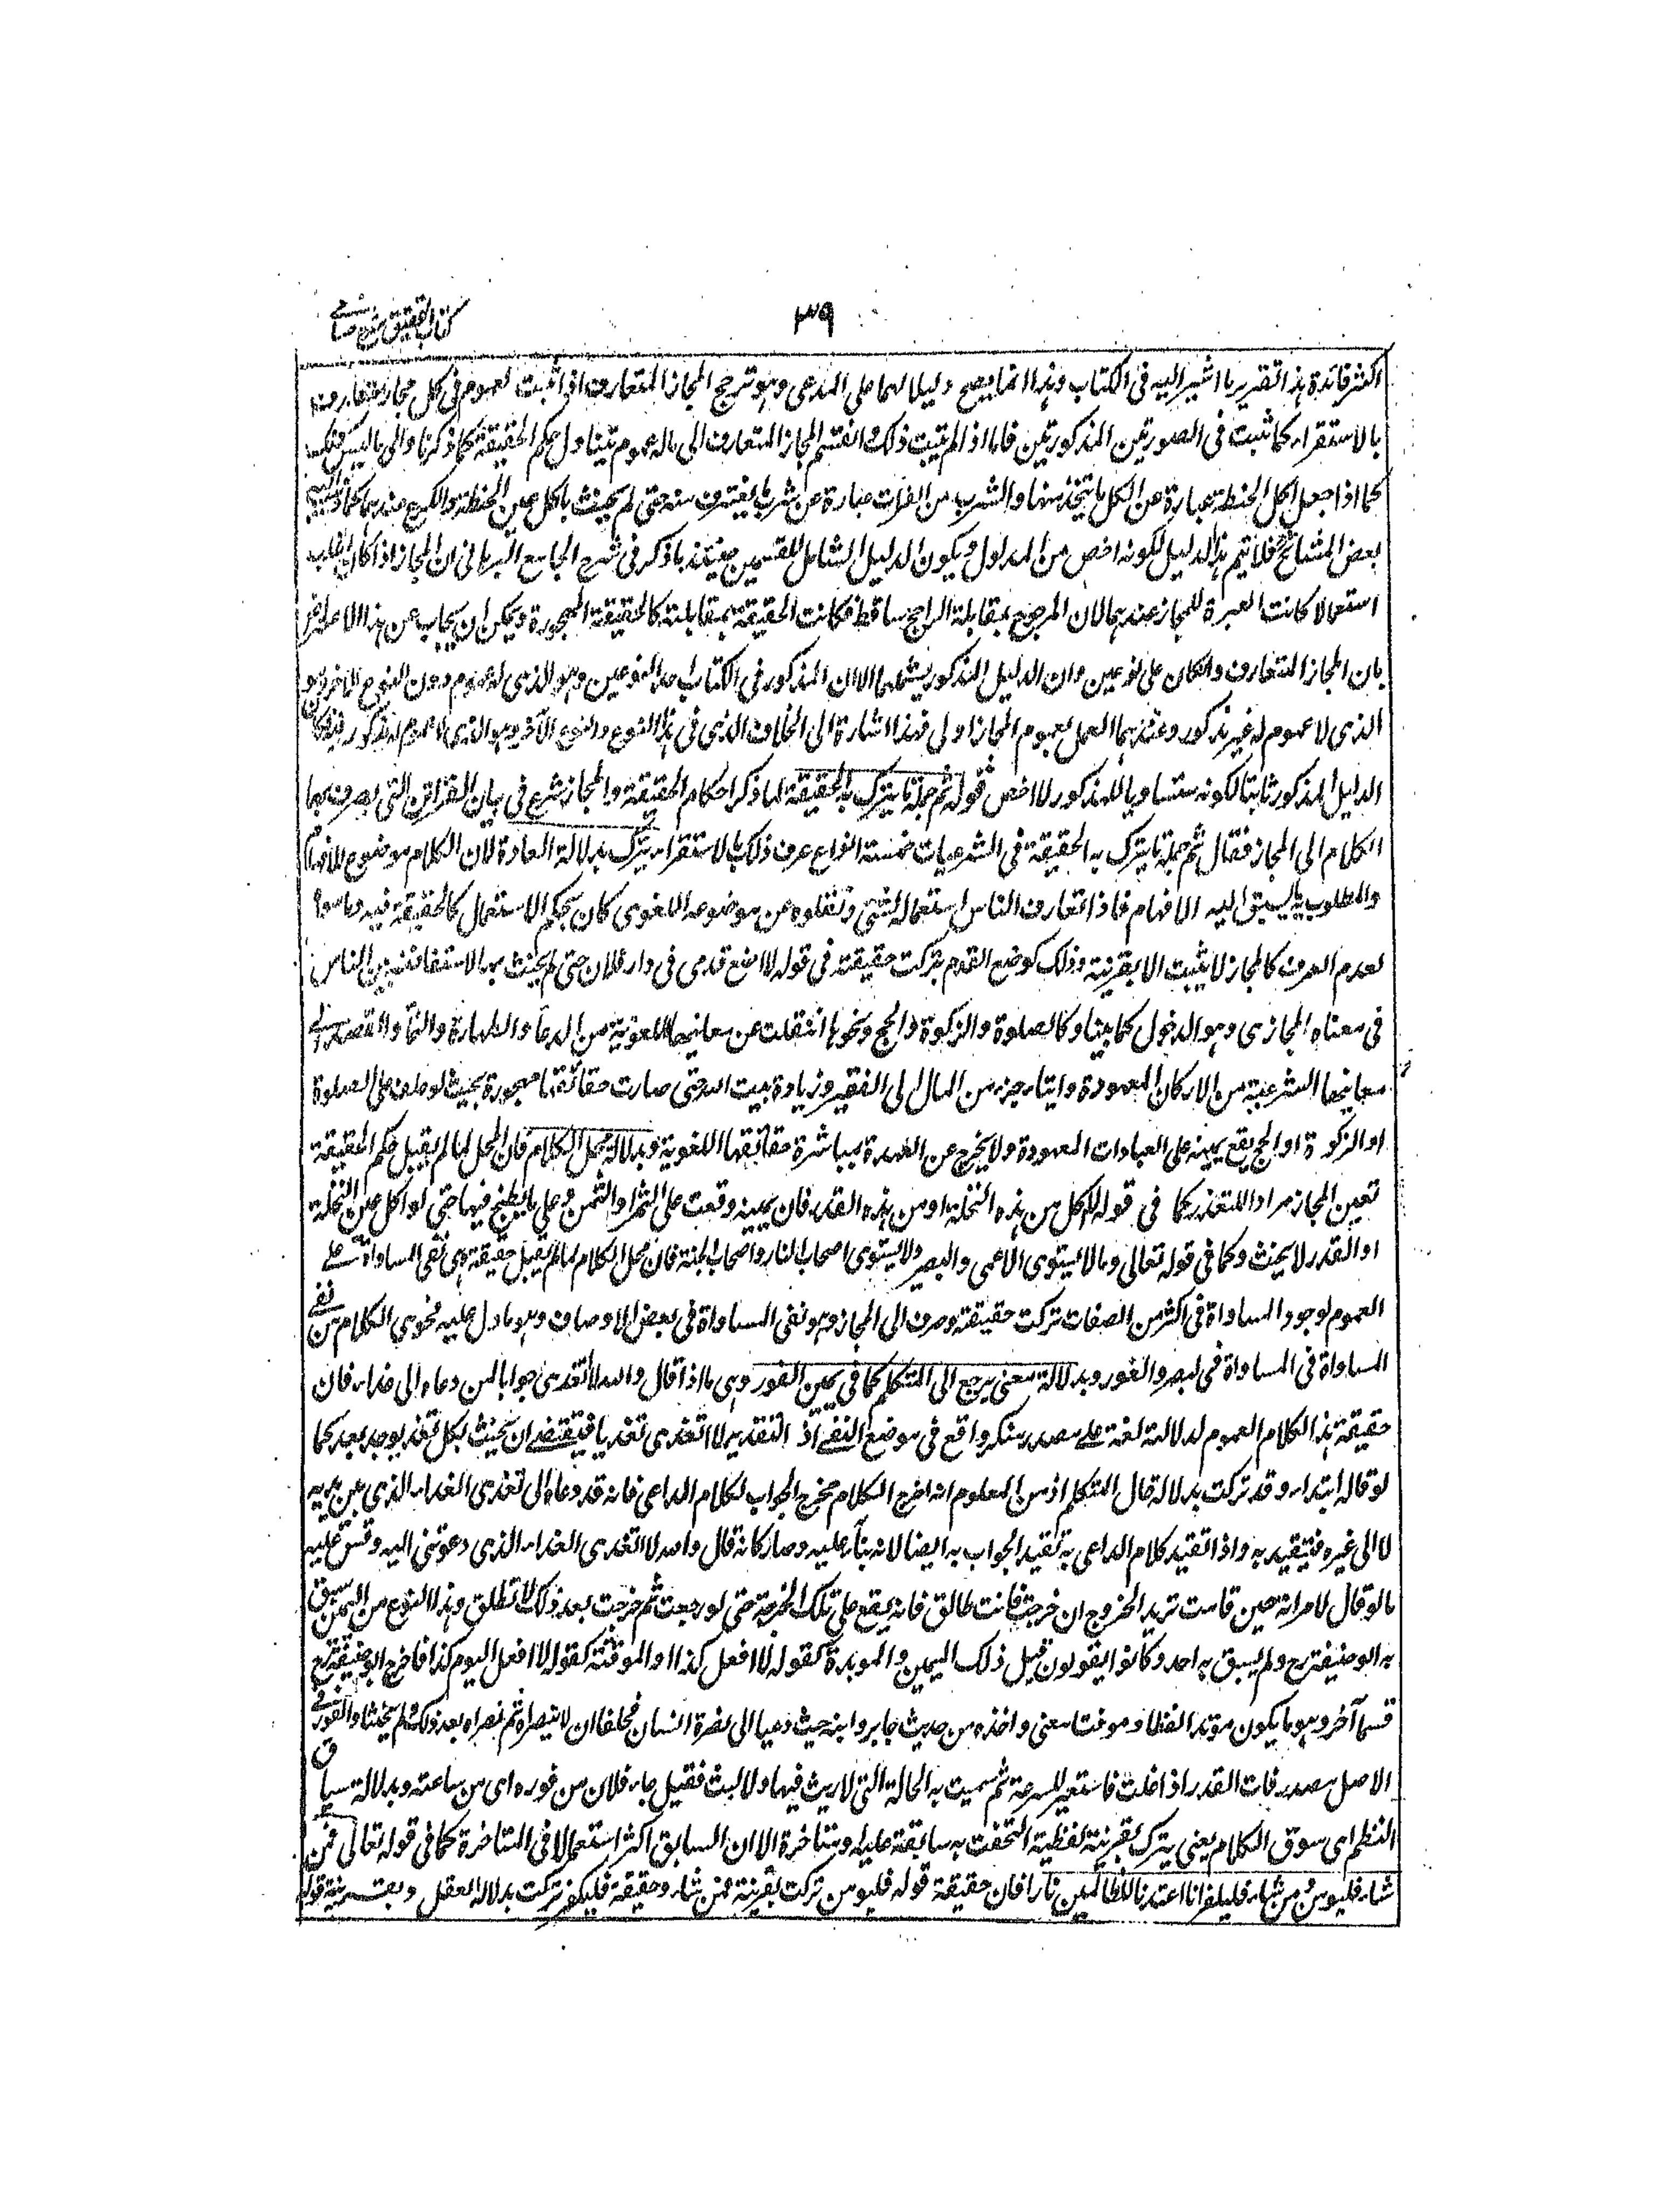 كتاب التحقيق شرح حسامي
٣٩
اكثر فائدة هذا تقرير ما اشير اليه فى الكتاب وهذا انما يصح دليلا لهما على المدعى وهو ترجح المجاز المتعارف اذا ثبت العموم فى كل مجاز متعارف
بالاستقراء كما ثبت فى الصورتين المذكورتين فاما اذا لم يثبت ذلك وانقسم المجاز المتعارف الى ماله عموم يتناول حكم الحقيقة كما ذكرنا والى ما ليس كذلك
كما اذا جعل اكل الحنطة عبارة عن اكل ما يتخذ منها والشرب من الفرات عبارة عن شرب ما يغترف منه حتى لم يحنث باكل عين الحنطة والكرع عندهما كما ذهب اليه
بعض المشائخ فلا يتم هذا الدليل لكونه اخص من المدلول ويكون الدليل الشامل للقسمين حينئذ ما ذكر فى شرح الجامع البرهانى ان المجاز اذا كان اغلب
استعمالا كانت العبرة للمجاز عندهما لان المرجوح بمقابلة الراجح ساقط فكانت الحقيقة بمقابلته كالحقيقة المهجورة ويمكن ان يجاب عن هذا الاعتراض
بان المجاز المتعارف وان كان على نوعين وان الدليل المذكور يشملهما الا ان المذكور فى الكتاب احد النوعين وهو الذى له عموم دون النوع الآخر وهو
الذى لا عموم له غير مذكور وعندهما العمل بعموم المجاز اولى فهذا اشارة الى الخلاف الذى فى هذا النوع والنوع الآخر وهو الذى لا عموم له مذكور فيه فكان
الدليل المذكور ثابتا لكونه متساويا للمذكور لا اخص قوله ثم جملة ما يترك به الحقيقة لما ذكر احكام الحقيقة والمجاز شرع فى بيان القرائن التى يصرف بها
الكلام الى المجاز فقال ثم جملة ما يترك به الحقيقة فى الشرعيات خمسة انواع عرف ذلك بالاستقراء يترك بدلالة العادة لان الكلام موضوع للافهام
والمطلوب به ما يسبق اليه الافهام فاذا تعارف الناس استعماله لشئ ونقلوه عن موضوعه اللغوى كان بحكم الاستعمال كالحقيقة فيه وما سواه
لعدم العرف كالمجاز لا يثبت الا بقرينة وذلك كوضع القدم تركت حقيقته فى قوله لا اضع قدمى فى دار فلان حتى لم يحنث بها لاستفاضته بين الناس
فى معناه المجازى وهو الدخول كما بينا وكالصلوة والزكوة والحج ونحوها انتقلت عن معانيها اللغوية من الدعاء والطهارة والنماء والقصد الى
معانيها الشرعية من الاركان المعهودة وايتاء جزء من المال الى الفقير وزيادة بيت الله حتى صارت حقائقها مهجورة بحيث لو حلف على الصلوة
او الزكوة او الحج يقع يمينه على العبادات المعهودة ولا يخرج عن العهدة بمباشرة حقائقها اللغوية وبدلالة محل الكلام فان المحل لما لم يقبل حكم الحقيقة
تعين المجاز مرادا للتعذر كما فى قوله لا آكل من هذه النخلة او من هذه القدر فان يمينه وقعت على الثمر او الثمن وعلى ما يطبخ فيها حتى لو اكل عين النخلة
او القدر لا يحنث وكما فى قوله تعالى وما لا يستوى الاعمى والبصير ولا يستوى اصحاب النار واصحاب الجنة فان محل الكلام لما لم يقبل حقيقته وهى نفى المساواة على
العموم لوجود المساواة فى اكثر من الصفات تركت حقيقته وصرف الى المجاز وهو نفى المساواة فى بعض الاوصاف وهو ما دل عليه فحوى الكلام من نفى
المساواة فى المساواة فى البصر والفوز وبدلالة معنى يرجع الى المتكلم كما فى يمين الفور وهى ما اذا قال والله لا اتغدى جوابا لمن دعاه الى غداء فان
حقيقة هذا الكلام العموم لدلالته لغة على مصدر منكر واقع فى موضع النفى اذ التقدير لا اتغدى تغديا فيقتضى ان يحنث بكل تغد يوجد بعد كما
لو قاله ابتداء وقد تركت بدلالة حال المتكلم اذ من المعلوم انه اخرج الكلام مخرج الجواب لكلام الداعى فانه قد دعاه الى تغدى الغداء الذى بين يديه
لا الى غيره فيتقيد به واذا تقيد كلام الداعى به تقيد الجواب به ايضا لانه بناء عليه وصار كانه قال والله لا اتغدى الغداء الذى دعوتنى اليه وقس عليه
ما لو قال لامراته حين قامت تريد الخروج ان خرجت فانت طالق فانه يقع على تلك الخرجة حتى لو رجعت ثم خرجت بعد ذلك لا تطلق وهذا النوع من اليمين سبق
به ابو حنيفة رح ولم يسبق به احد وكانوا يقولون قبل ذلك اليمين والموبدة كقوله لا افعل كذا او الموقتة كقوله لا افعل اليوم كذا فاخرج ابو حنيفة رح
قسما آخر وهو ما يكون مؤبدا لفظا وموقتا معنى واخذه من حديث جابر وابنه حيث دعيا الى نصرة انسان فحلفا ان لا ينصراه ثم نصراه بعد ذلك ولم يحنثا والفور فى
الاصل مصدر فات القدر اذا غلت فاستعير للسرعة ثم سميت به الحالة التى لا ريث فيها ولا لبث فقيل جاء فلان من فوره اى من ساعته وبدلالة سياق
النظم اى سوق الكلام يعنى يترك بقرينة لفظية التحقت به سابقة عليه او متاخرة الا ان السابق اكثر استعمالا فى المتاخرة كما فى قوله تعالى فمن
شاء فليومن ومن شاء فليكفر انا اعتدنا للظالمين نارا فان حقيقة قوله فليومن تركت بقرينة فمن شاء وحقيقة فليكفر تركت بدلالة العقل وبقرينة قوله